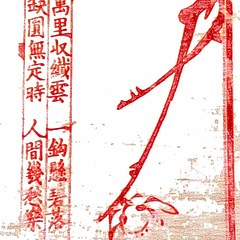 萬里收纖雲 一鈎懸碧落
缺圓無定時 人間幾愁樂